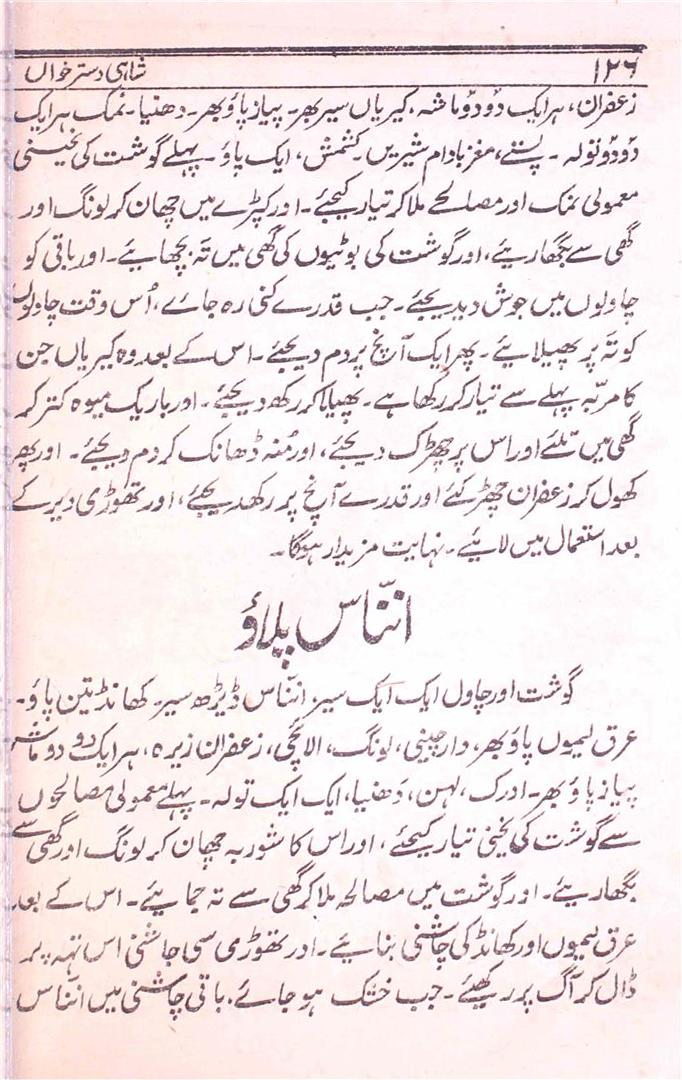 ۱۲۶ شاہی دسترخواں
زعفران، ہر ایک دَو دَو ماشہ، کیریاں سیر بھر۔ پیاز پاؤ بھر۔ دھنیا۔ نمک ہر ایک
دَو دَو تولہ۔ پستے، مغز بادام شیریں۔ کشمش، ایک پاؤ۔ پہلے گوشت کی یخنی
معمولی نمک اور مصالحے ملا کر تیار کیجئے۔ اور کپڑے میں چھان کر لونگ اور
گھی سے بگھاریئے، اور گوشت کی بوٹیوں کی گھی میں تہ بچھایئے۔ اور باقی کو
چاولوں میں جوش دیدیجئے۔ جب قدرے کنی رہ جائے، اُس وقت چاولوں
کو تہ پر پھیلایئے۔ پھر ایک آنچ پر دم دیجئے۔ اس کے بعد وہ کیریاں جن
کا مربّہ پہلے سے تیار کر رکھا ہے۔ پھیلا کر رکھ دیجئے۔ اور باریک میوہ کتر کر
گھی میں تلئے اور اس پر چھڑک دیجئے، اور مُنہ ڈھانک کر دم دیجئے۔ اور پھر
کھول کر زعفران چھڑکئے اور قدرے آنچ پر رکھدیجئے، اور تھوڑی دیر کے
بعد استعمال میں لایئے۔ نہایت مزیدار ہوگا۔
انناّس پلاؤ
گوشت اور چاول ایک ایک سیر، انناّس ڈیڑھ سیر۔ کھانڈ تین پاؤ۔
عرق لیموں پاؤ بھر، دارچینی، لونگ، الائچی، زعفران زیرہ، ہر ایک دو دو ماشہ
پیاز پاؤ بھر۔ ادرک، لہن، دھنیا، ایک ایک تولہ۔ پہلے معمولی مصالحوں
سے گوشت کی یخنی تیار کیجئے، اور اس کا شوربہ چھان کر لونگ اور گھی سے
بگھاریئے۔ اور گوشت میں مصالحہ ملا کر گھی سے تہ جمایئے۔ اس کے بعد
عرق لیموں اور کھانڈ کی چاشنی بنایئے۔ اور تھوڑی سی چاشنی اس تہہ پر
ڈال کر آگ پر رکھیئے۔ جب خشک ہو جائے، باقی چاشنی میں انناّس